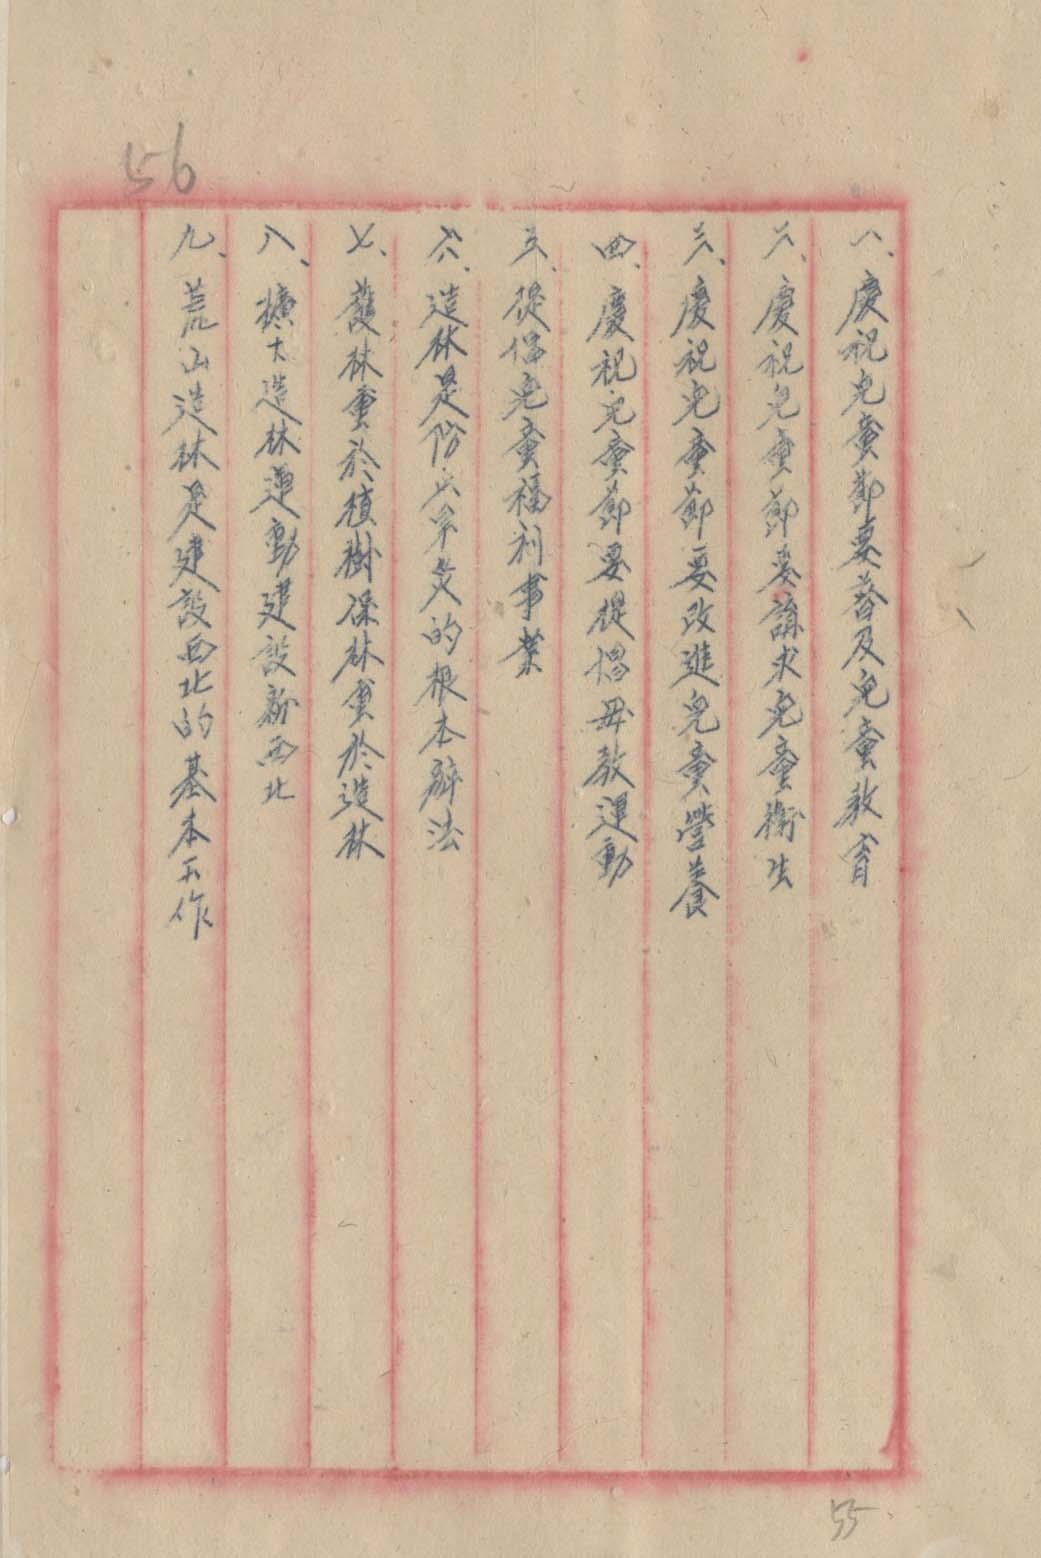 56
一、慶祝兒童節要普及兒童教育
二、慶祝兒童節要講求兒童衛生
三、慶祝兒童節要改進兒童營養
四、慶祝兒童節要提倡母教運動
五、提倡兒童福利事業
六、造林是防災旱災的根本辦法
七、護林重於植樹保林重於造林
八、擴大造林運動建設新西北
九、荒山造林是建設西北的基本工作
55